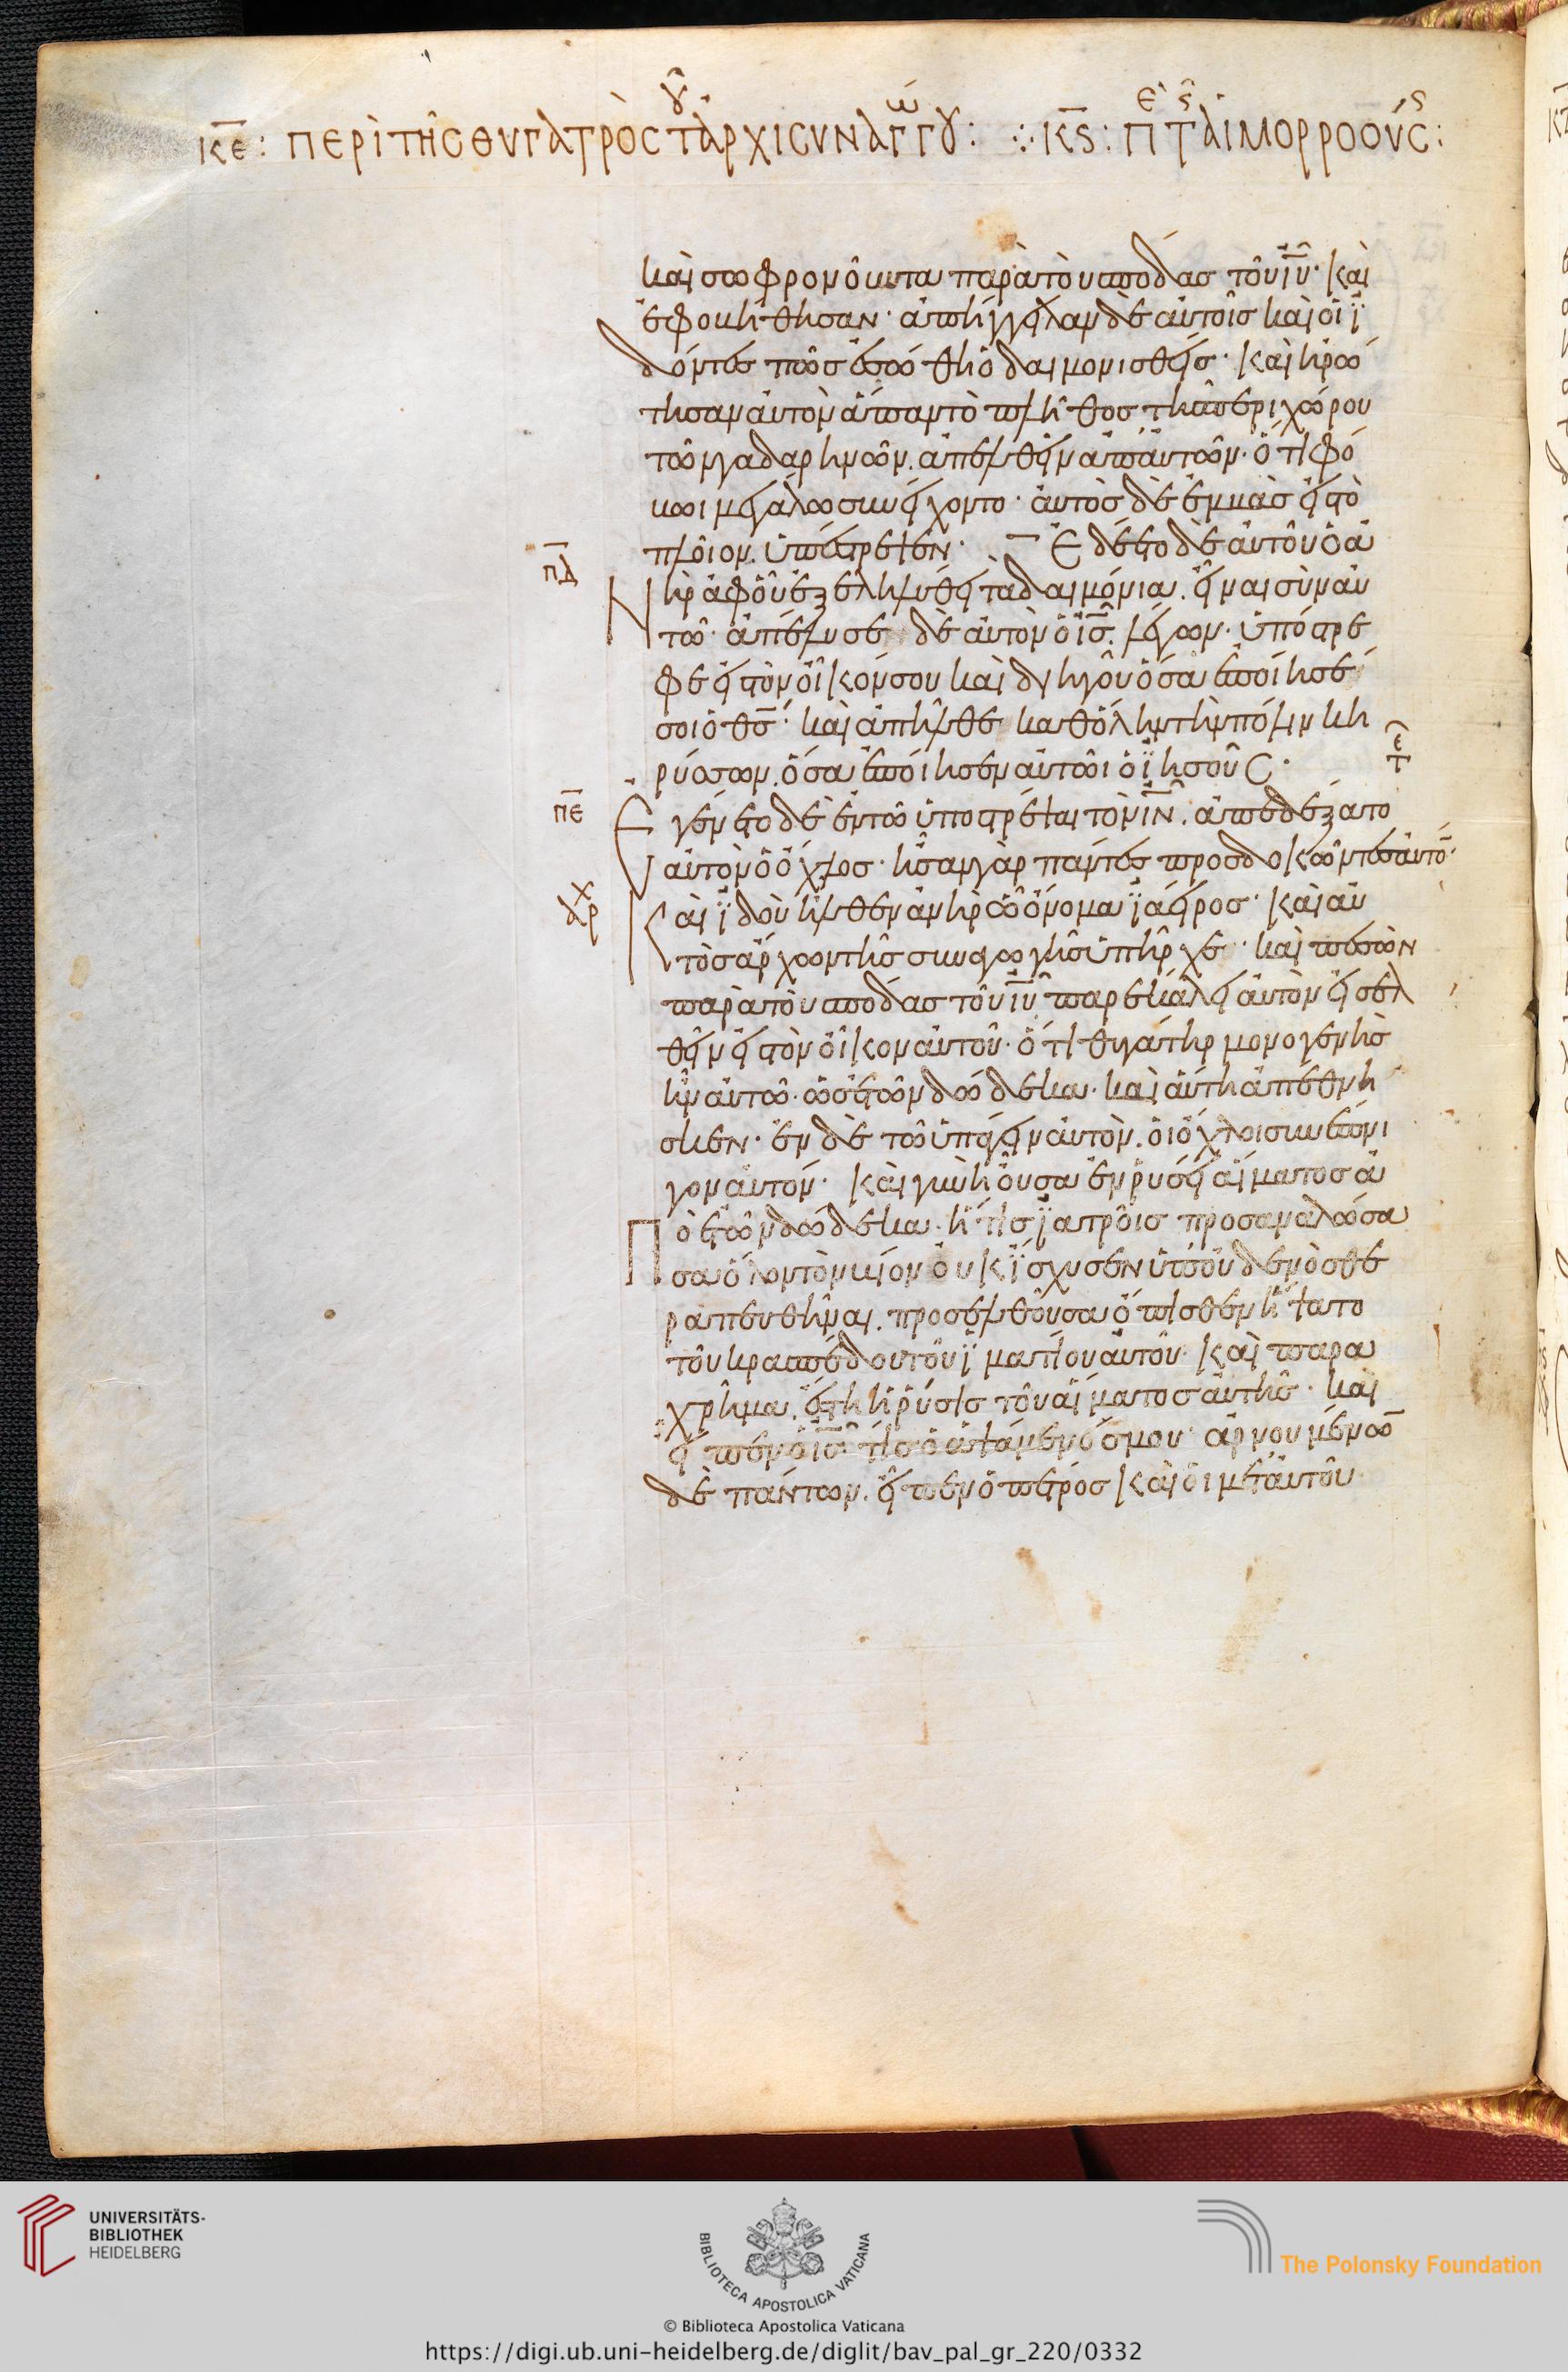 κε: περὶ τῆς θυγατρὸς τοῦ ἀρχισυναγώγου: ∴ κς: περὶ τῆς αἱμορροούσης:
καὶ σωφρονοῦντα παρὰ τοὺς πόδας τοῦ ἰῦ· καὶ
ἐφοβήθησαν· ἀπήγγειλαν δὲ αὐτοῖς καὶ οἱ ἰ
δόντες πῶς ἐσώθη ὁ δαιμονισθείς· καὶ ἠρώ
τησαν αὐτὸν ἅπαν τὸ πλῆθος τῆς περιχώρου
τῶν γαδαρηνῶν. ἀπελθεῖν ἀπ' αὐτῶν· ὅτι φό
βωι μεγάλω συνείχοντο· αὐτὸς δὲ ἐμβὰς εἰς τὸ
πλοῖον. ὑπέστρεψεν· Ἐδέετο δὲ αὐτοῦ ὁ ἀ
πδ
νὴρ ἀφ' οὗ ἐξεληλύθει τὰ δαιμόνια. εἶναι σὺν αὐ
τῶ· ἀπέλυσε δὲ αὐτὸν ὁ ἰς. λέγων· ὑπόστρε
φε εἰς τὸν οἶκόν σου καὶ διηγοῦ ὅσα ἐποίησέ
σοι ὁ θς· καὶ ἀπῆλθε καθ' ὅλην τὴν πόλιν κη
ρύσσων. ὅσα ἐποίησεν αὐτῶι ὁ ἰησοῦς·
τε
πε
Ἐγένετο δὲ ἐν τῶ ὑποστρέψαι τὸν ἰν. ἀπεδέξατο
αὐτὸν ὁ ὄχλος· ἦσαν γὰρ πάντες προσδοκῶντες αὐτόν·
αρχ
Καὶ ἰδοὺ ἦλθεν ἀνὴρ ὧ ὄνομα ἰάειρος· καὶ αὐ
τὸς ἄρχων τῆς συναγωγῆς ὑπῆρχε· καὶ πεσὼν
παρὰ τοὺς πόδας τοῦ ἰῦ παρεκάλει αὐτὸν εἰσελ
θεῖν εἰς τὸν οἶκον αὐτοῦ· ὅτι θυγάτηρ μονογενὴς
ἦν αὐτῶ· ὡς ἐτῶν δώδεκα· καὶ αὕτη ἀπέθνη
σκεν· ἐν δὲ τῶ ὑπάγειν αὐτὸν. οἱ ὄχλοι συνέπνι
γον αὐτόν· καὶ γυνὴ οὖσα ἐν ρύσει αἵματος ἀ
πὸ ἐτῶν δώδεκα. ἥτις ἰατροῖς προσαναλώσα
σα ὅλον τὸν βίον οὐκ ἴσχυσεν ὑπ' οὐδενὸς θε
ραπευθῆναι. προσελθοῦσα ὄπισθεν ἥψατο
τοῦ κρασπέδου τοῦ ἱματίου αὐτοῦ· καὶ παρα
χρῆμα. ἔστη ἡ ρύσις τοῦ αἵματος αὐτῆς· καὶ
εἶπεν ὁ ἰς τίς ὁ ἁψάμενός μου· ἀρνουμένων
δὲ πάντων. εἶπεν ὁ πέτρος καὶ οἱ μετ' αὐτοῦ·
UNIVERSITÄTS-
BIBLIOTHEK
HEIDELBERG
BIBLIOTECA APOSTOLICA VATICANA
The Polonsky Foundation
© Biblioteca Apostolica Vaticana
https://digi.ub.uni-heidelberg.de/diglit/bav_pal_gr_220/0332